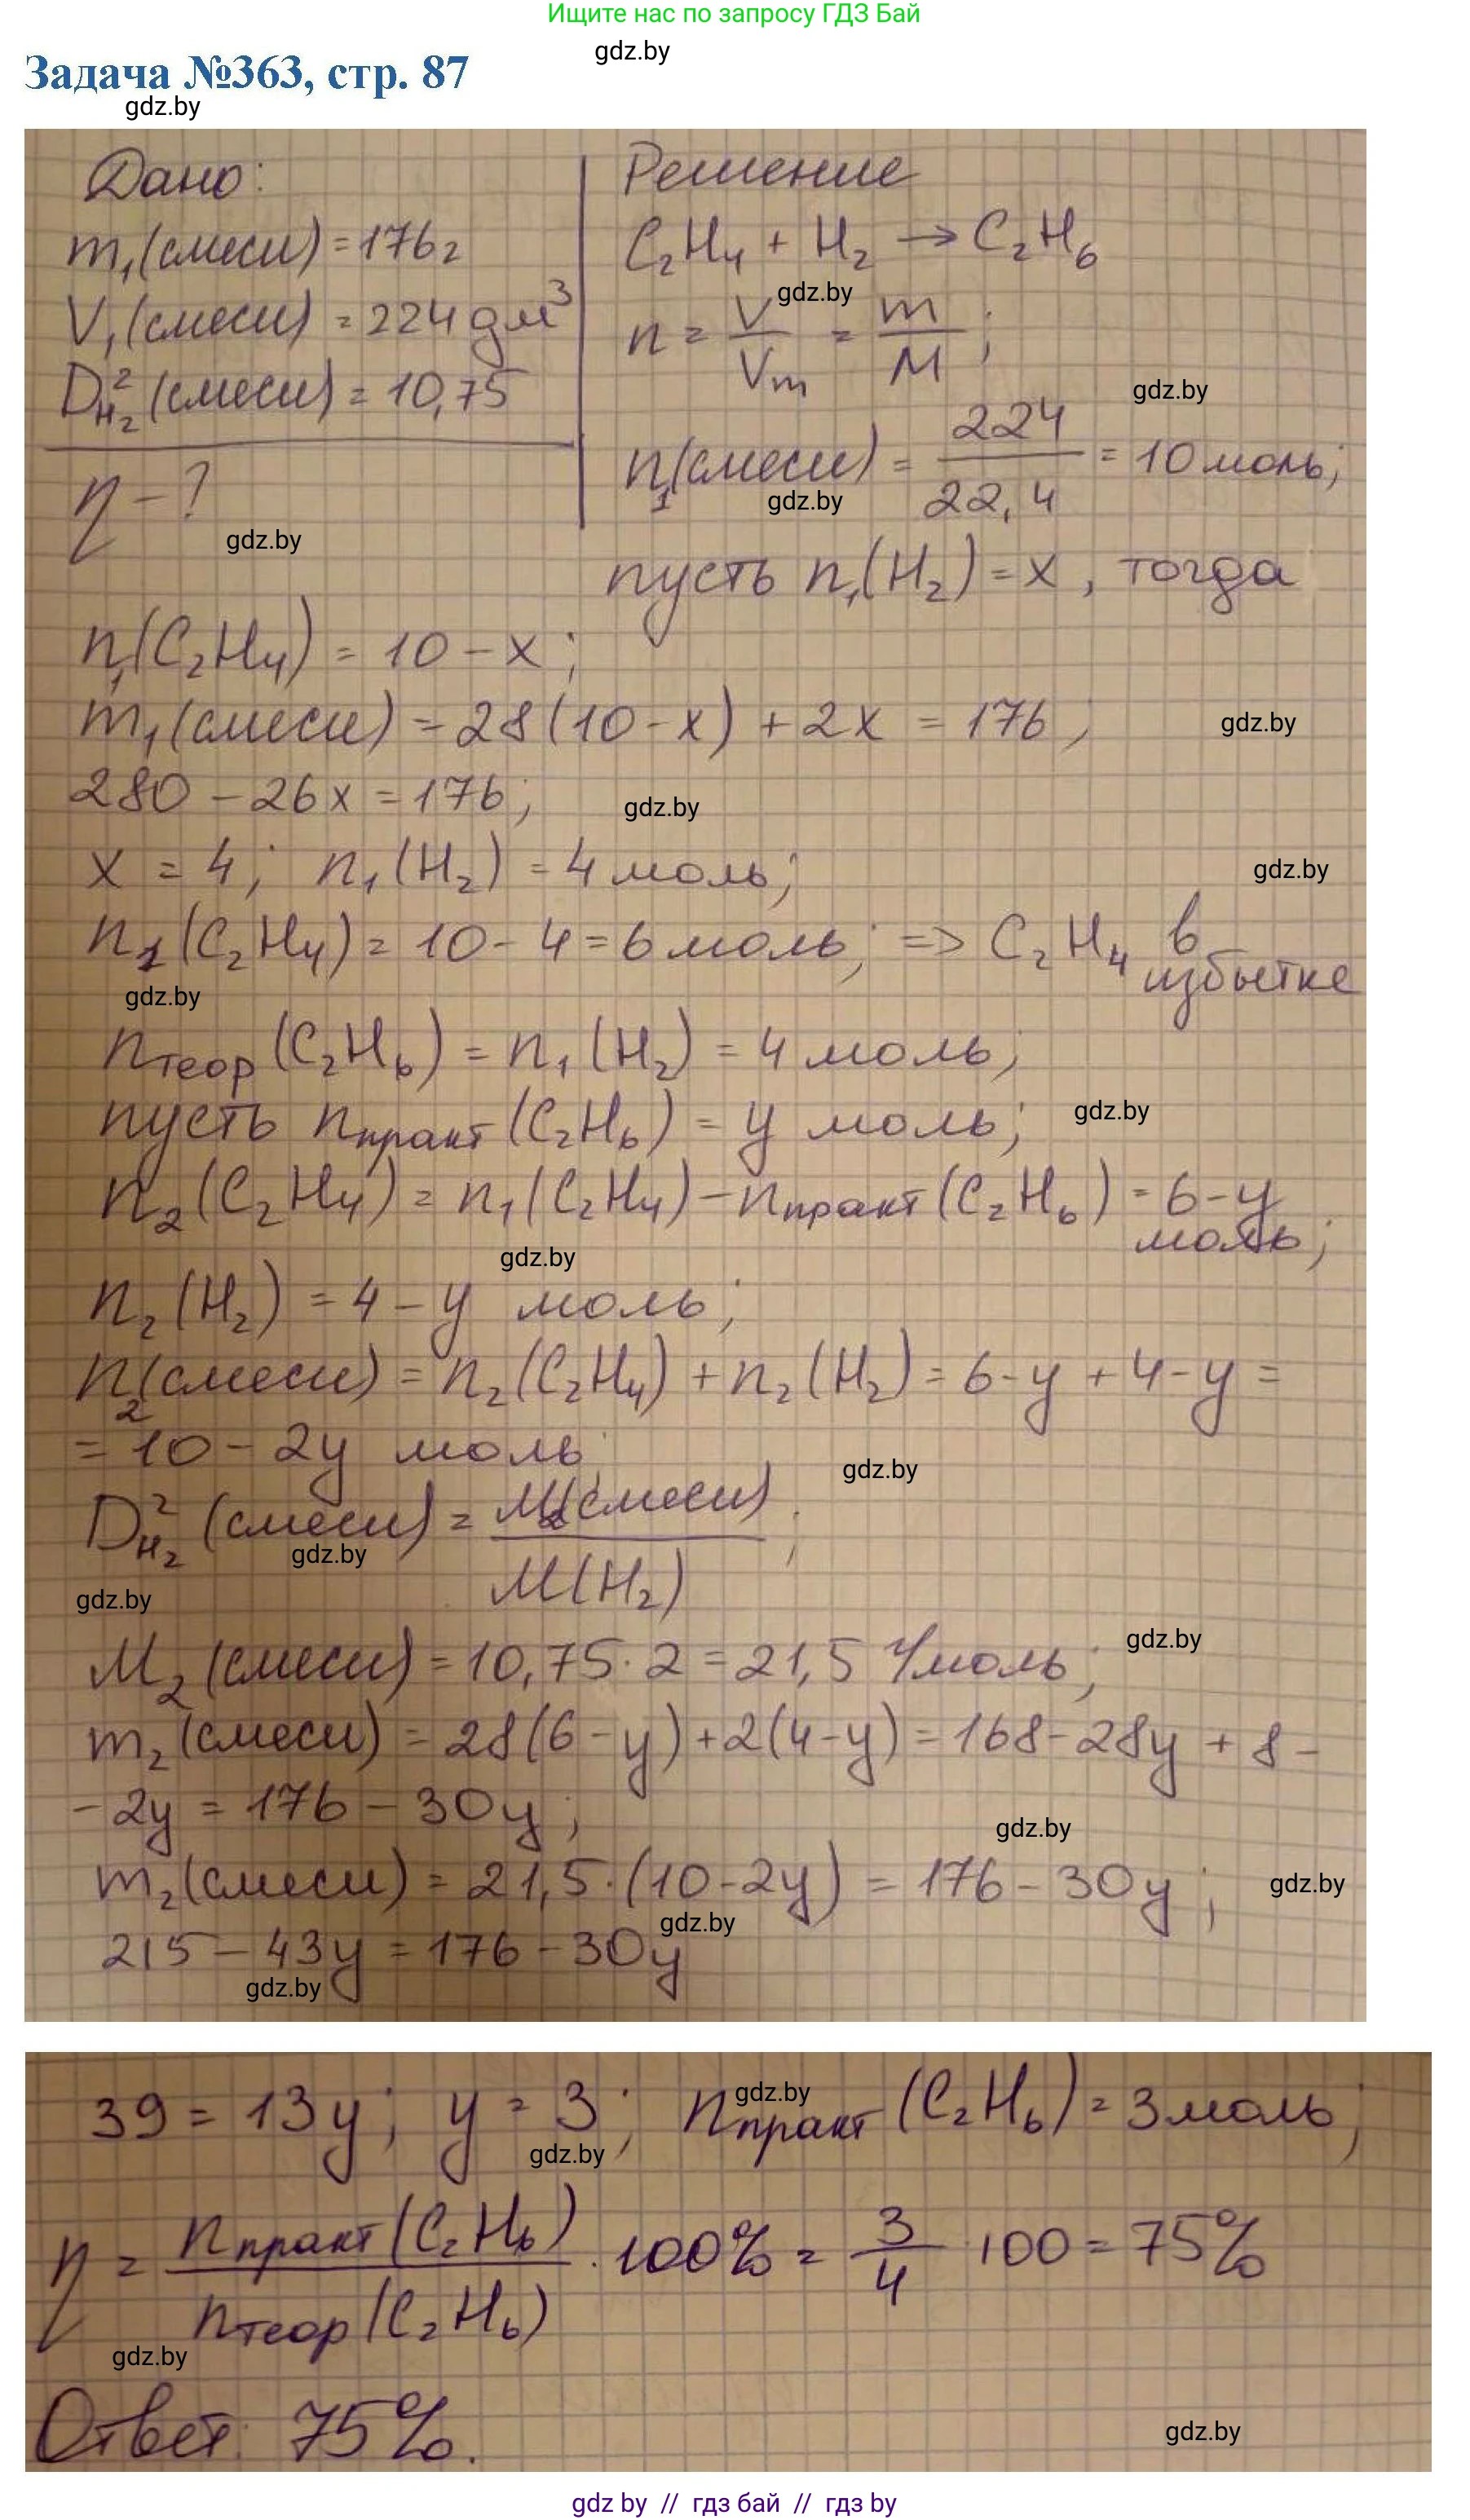 Ищите нас по запросу ГДЗ Бай
gdz.by
Задача №363, стр. 87
gdz.by
Дано:
m₁(смеси) = 176г
V₁(смеси) = 224 дм³
D²H₂(смеси) = 10,75
η - ?
gdz.by
Решение
C₂H₄ + H₂ → C₂H₆
gdz.by
n = V/Vm = m/M;
gdz.by
n₁(смеси) = 224/22,4 = 10 моль;
gdz.by
пусть n₁(H₂) = x, тогда
n₁(C₂H₄) = 10 - x;
m₁(смеси) = 28(10-x) + 2x = 176;
gdz.by
280 - 26x = 176;
gdz.by
x = 4; n₁(H₂) = 4 моль;
gdz.by
n₁(C₂H₄) = 10 - 4 = 6 моль; => C₂H₄ в
избытке
gdz.by
nтеор(C₂H₆) = n₁(H₂) = 4 моль;
пусть nпракт(C₂H₆) = y моль;
gdz.by
n₂(C₂H₄) = n₁(C₂H₄) - nпракт(C₂H₆) = 6-y
моль;
gdz.by
n₂(H₂) = 4 - y моль;
n₂(смеси) = n₂(C₂H₄) + n₂(H₂) = 6-y + 4-y =
= 10 - 2y моль;
gdz.by
D²H₂(смеси) = M₂(смеси)/M(H₂);
gdz.by
gdz.by
M₂(смеси) = 10,75·2 = 21,5 г/моль;
gdz.by
m₂(смеси) = 28(6-y)+2(4-y) = 168-28y + 8 -
- 2y = 176 - 30y;
gdz.by
m₂(смеси) = 21,5·(10-2y) = 176 - 30y;
gdz.by
gdz.by
215 - 43y = 176 - 30y
gdz.by
39 = 13y; y = 3; nпракт(C₂H₆) = 3 моль;
gdz.by
gdz.by
η = nпракт(C₂H₆)/nтеор(C₂H₆) · 100% = 3/4 · 100 = 75%
gdz.by
Ответ: 75%.
gdz.by
gdz by // гдз бай // гдз by